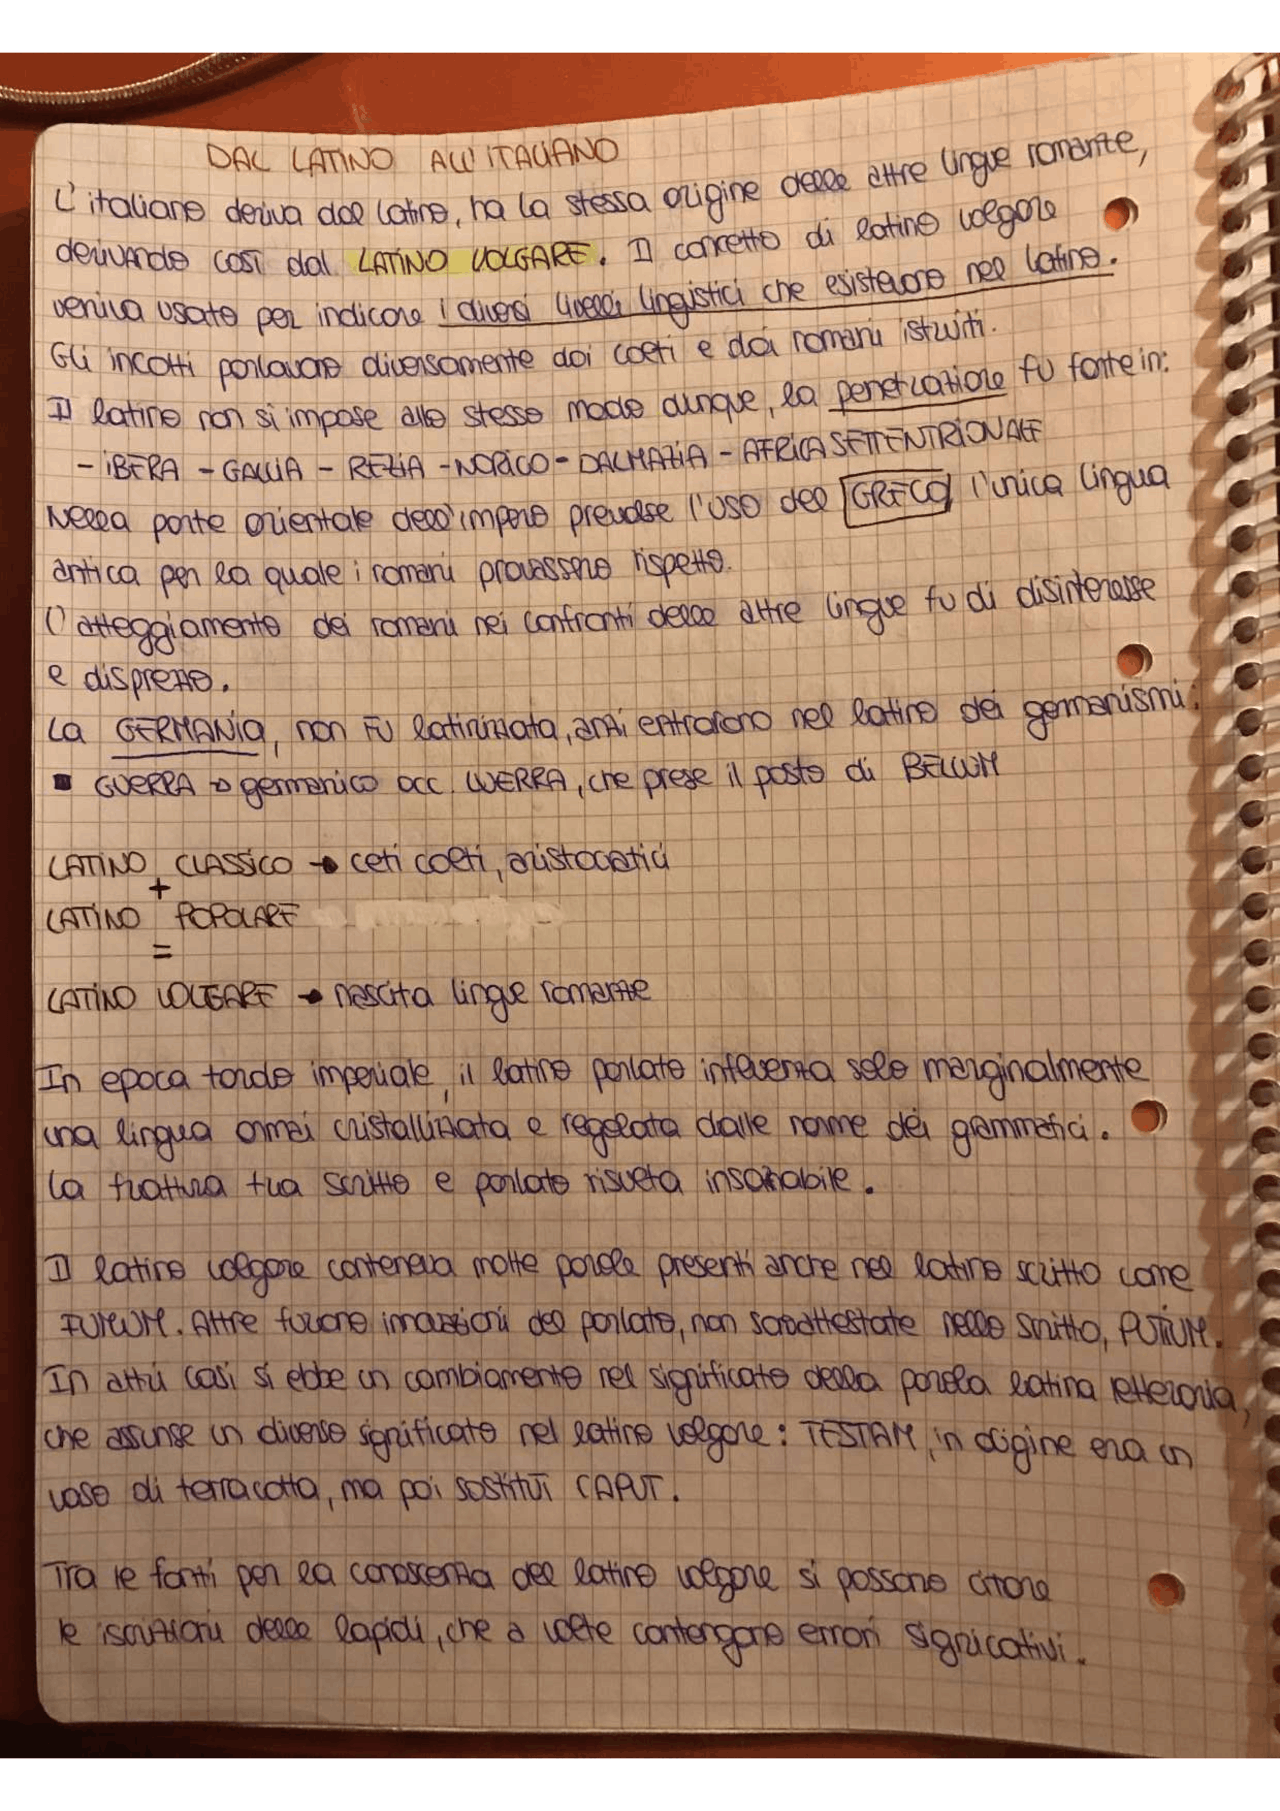 DAL LATINO ALL'ITALIANO
L'italiano deriva dal latino, ha la stessa origine delle altre lingue romanze,
derivando così dal LATINO VOLGARE. Il concetto di latino volgare
veniva usato per indicare i diversi livelli linguistici che esistevano nel latino.
Gli incolti parlavano diversamente dai colti e dai romani istruiti.
Il latino non si impose allo stesso modo dunque, la penetrazione fu forte in:
- IBERA - GALLIA - REZIA - NORICO - DALMAZIA - AFRICA SETTENTRIONALE
Nella parte orientale dell'impero prevalse l'uso del GRECO l'unica lingua
antica per la quale i romani provassero rispetto.
L'atteggiamento dei romani nei confronti delle altre lingue fu di disinteresse
e disprezzo.
La GERMANIA, non fu latinizzata, anzi entrarono nel latino dei germanismi:
▪ GUERRA → germanico occ. WERRA, che prese il posto di BELLUM
LATINO CLASSICO → ceti colti, aristocratici
+
LATINO POPOLARE
=
LATINO VOLGARE → nascita lingue romanze
In epoca tardo imperiale, il latino parlato influenza solo marginalmente
una lingua ormai cristallizzata e regolata dalle norme dei grammatici.
La frattura tra scritto e parlato risulta insanabile.
Il latino volgare conteneva molte parole presenti anche nel latino scritto come
FUMUM. Altre furono innovazioni del parlato, non attestate nello scritto, PUTIUM.
In altri casi si ebbe un cambiamento nel significato della parola latina letteraria,
che assunse un diverso significato nel latino volgare: TESTAM, in origine era un
vaso di terracotta, ma poi sostituì CAPUT.
Tra le fonti per la conoscenza del latino volgare si possono citare
le iscrizioni delle lapidi, che a volte contengono errori signicativi.